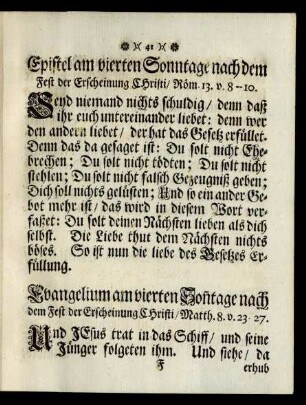 ※ ) 41 ( ※
Epistel am vierten Sonntage nach dem
Fest der Erscheinung CHristi/ Röm. 13. v. 8-10.
Seyd niemand nichts schuldig/ denn daß
ihr euch untereinander liebet: denn wer
den andern liebet/ der hat das Gesetz erfüllet.
Denn das da gesaget ist: Du solt nicht Ehe-
brechen; Du solt nicht tödten; Du solt nicht
stehlen; Du solt nicht falsch Gezeugniß geben;
Dich soll nichts gelüsten; Und so ein ander Ge-
bot mehr ist/ das wird in diesem Wort ver-
faßet: Du solt deinen Nächsten lieben als dich
selbst. Die Liebe thut dem Nächsten nichts
böses. So ist nun die liebe des Gesetzes Er-
füllung.
Evangelium am vierten Soñtage nach
dem Fest der Erscheinung CHristi/ Matth. 8. v. 23-27.
Und JEsus trat in das Schiff/ und seine
Jünger folgeten ihm. Und siehe/ da
F erhub